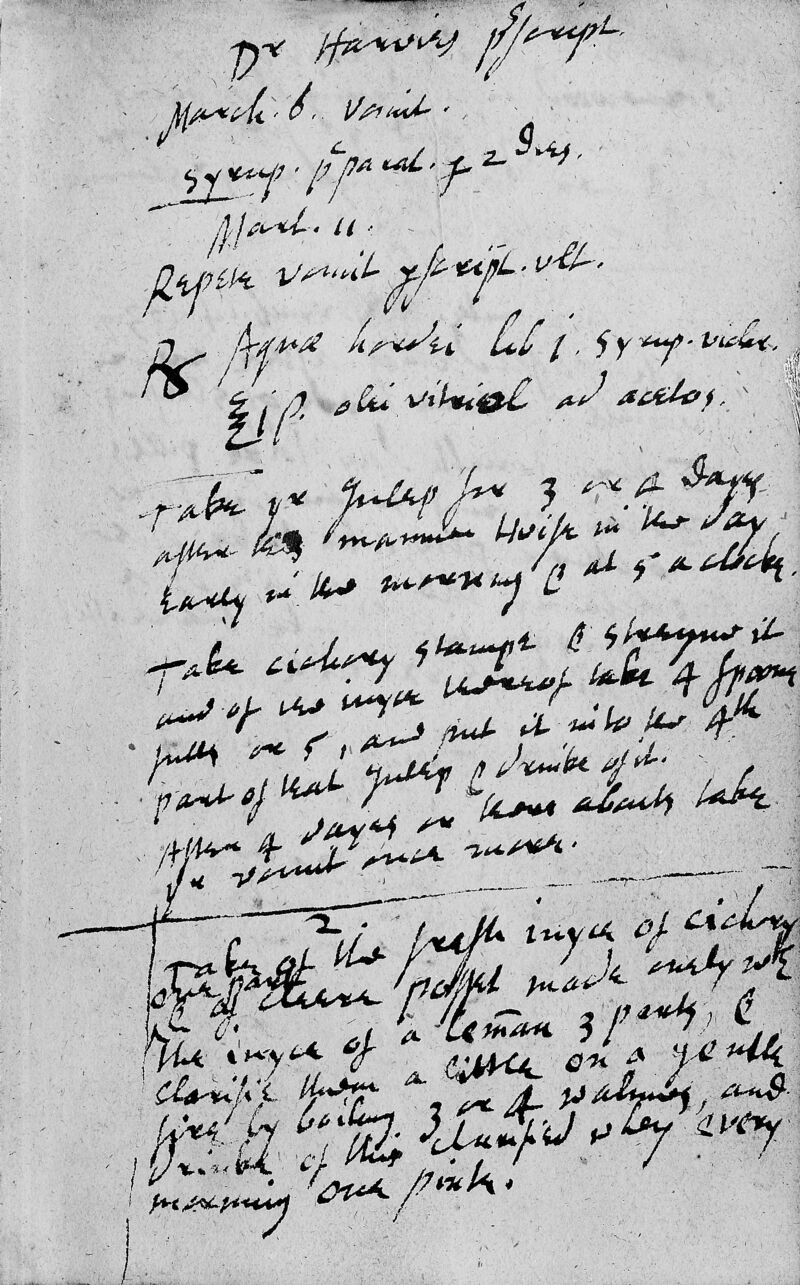 Dr Harvies pscript.
March. 6. vomit.
syrup. pparat. p 2 dies.
Mart. 11.
Repete vomit pscript. ult.
Rx Aquæ hordei lib j. syrup. violar.
℥jß. olei vitriol ad acetos.
Take yr Julep for 3 or 4 dayes
after this manner twise in the day
early in the morning & at 5 a clocke.
Take cichory stampt & streyne it
and of the iuyce thereof take 4 spoone
fulls or 5, and put it into the 4th
part of that Julep & drinke of it.
After 4 dayes or there abouts take
yr vomit once more.
2
Take of the fresh iuyce of cichory
one part
& of cleere posset made onely wth
the iuyce of a lemman 3 parts, &
clarifie them a little on a gentle
fire by boiling 3 or 4 walmes, and
drinke of this clarified whey every
morning one pinte.